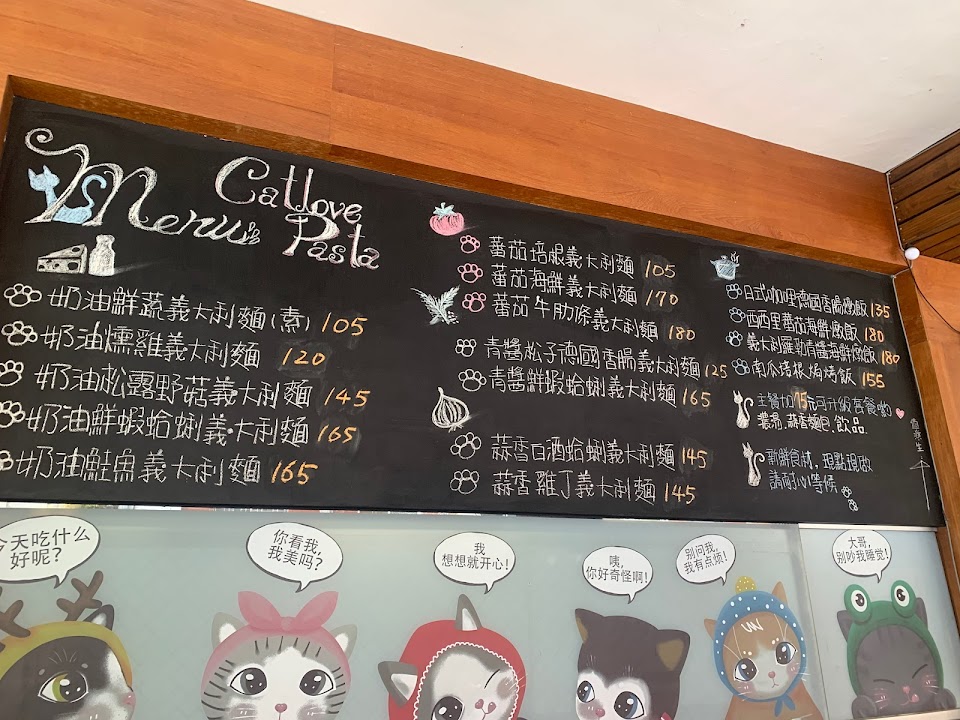 Menu is
Catlove
Pasta
奶油鮮蔬義大利麵(素) 105
奶油燻雞義大利麵 120
奶油松露野菇義大利麵 145
奶油鮮蝦蛤蜊義大利麵 165
奶油鮭魚義大利麵 165
蕃茄培根義大利麵 105
蕃茄海鮮義大利麵 170
蕃茄牛肋條義大利麵 180
青醬松子德國香腸義大利麵 125
青醬鮮蝦蛤蜊義大利麵 165
蒜香白酒蛤蜊義大利麵 145
蒜香雞丁義大利麵 145
日式咖哩德國香腸燉飯 135
西西里蕃茄海鮮燉飯 180
義大利羅勒青醬海鮮燉飯 180
南瓜培根焗烤飯 155
主餐加75元可升級套餐喲
濃湯.蒜香麵包.飲品
新鮮食材，現點現做
請耐心等候
今天吃什么
好呢？
你看我，
我美吗？
我
想想就开心！
咦，
你好奇怪啊！
别问我，
我有点烦！
大哥，
别吵我睡觉！